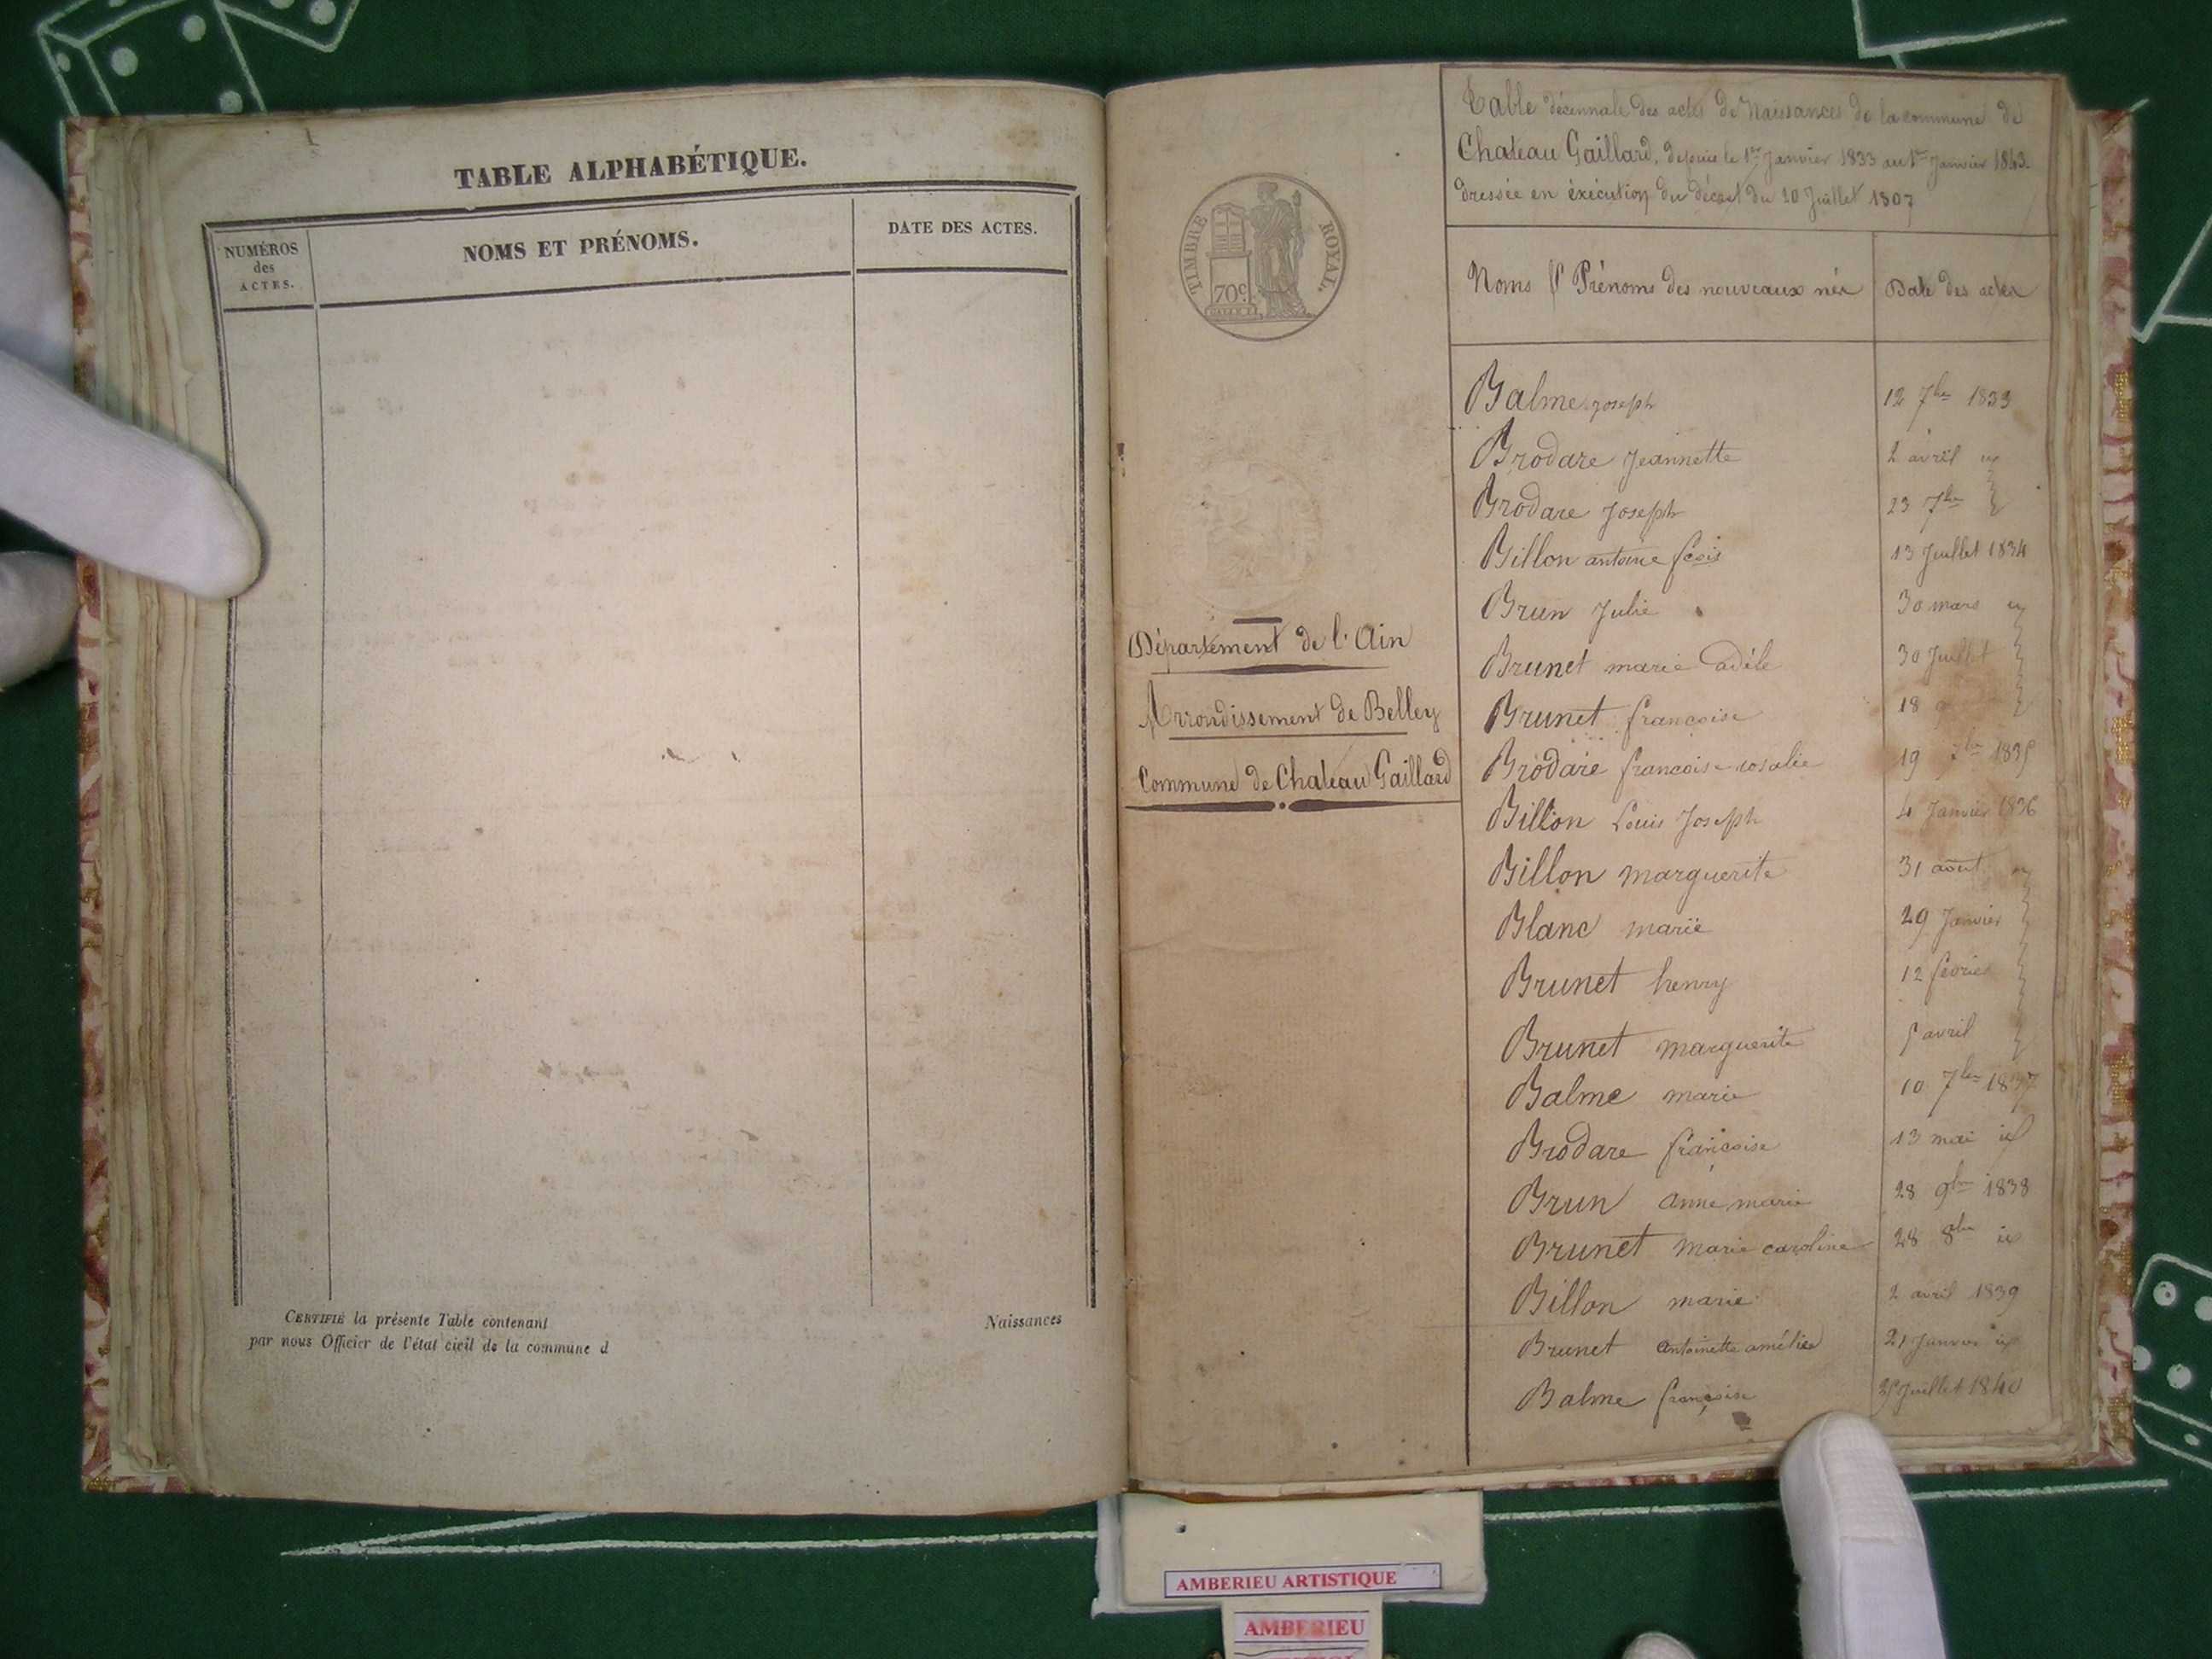 TABLE ALPHABÉTIQUE.
NUMÉROS
des
ACTES.
NOMS ET PRÉNOMS.
DATE DES ACTES.
CERTIFIÉ la présente Table contenant Naissances
par nous Officier de l'état civil de la commune d
TIMBRE ROYAL.
70c
Département de l'Ain
Arrondissement de Belley
Commune de Chateau Gaillard
Table décennale des actes de Naissances de la commune de
Chateau Gaillard, depuis le 1er Janvier 1833 au 1er Janvier 1843.
dressée en éxécution du décret du 20 Juillet 1807
Noms & Prénoms des nouveaux nés Date des actes
Balme joseph 12 7bre 1833
Brodare Jeannette 2 avril
Brodare Joseph 23 7bre
Billon antoine fcois 13 Juillet 1834
Brun Julie 30 mars
Brunet marie adèle 30 Juillet
Brunet francoise 18
Brodare francoise rosalie 19 1835
Billon Louis Joseph 4 Janvier 1836
Billon marguerite 31 aout
Blanc marie 29 Janvier
Brunet henry 12 fevrier
Brunet marguerite 5 avril
Balme marie 10 7bre 1837
Brodare francoise 13 mai id
Brun anne marie 28 9bre 1838
Brunet marie caroline 28 8bre id
Billon marie 2 avril 1839
Brunet antoinette amélie 21 Janvier id
Balme françoise Juillet 1840
AMBERIEU ARTISTIQUE
AMBERIEU